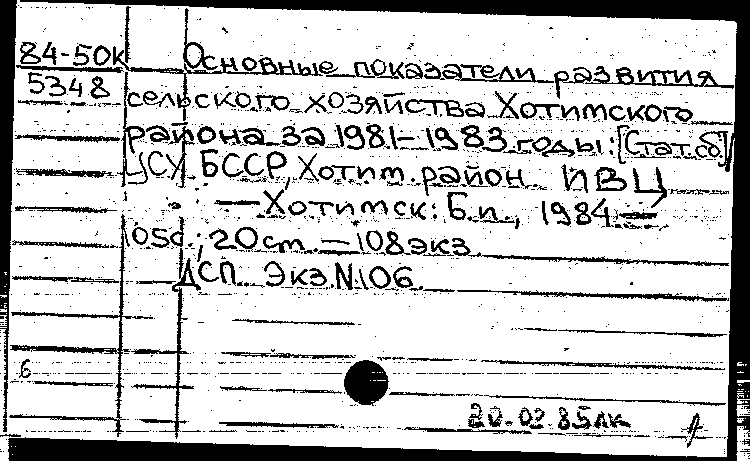 84-50к Основные показатели развития
5348 сельского хозяйства Хотимского
района за 1981-1983 годы: [Стат.сб.]/
ЦСУ БССР, Хотим. район ИВЦ
— Хотимск: Б.и., 1984. —
105с.; 20см. — 108экз.
ДСП. Экз.N.106.
6
20.02.85лк